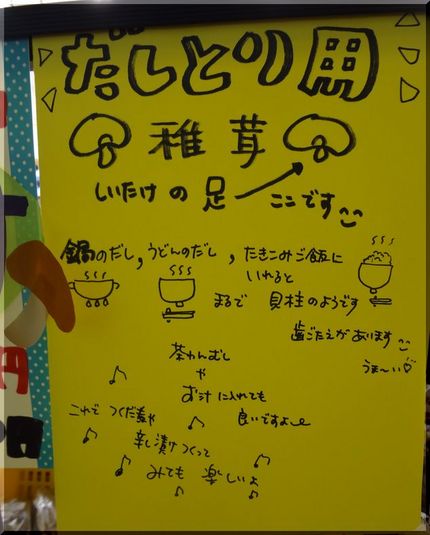 だしとり用
稚茸
しいたけの足 ここです
鍋のだし，うどんのだし，たきこみご飯に
いれると
まるで 貝柱のようです
歯ごたえがあります
うま〜い♡
茶わんむし
や
お汁に入れても
良いですよ
これで つくだ煮や
辛し漬けつくって
みても 楽しいよ
円